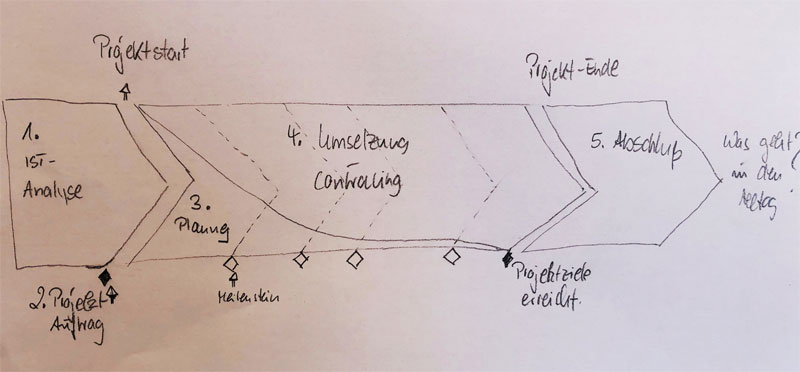 Projektstart
Projekt-Ende
1.
IST-
Analyse
3.
Planung
4. Umsetzung
Controlling
5. Abschluß
Was geht?
in den
Alltag
2. Projekt
Auftrag
Meilenstein
Projektziele
erreicht.